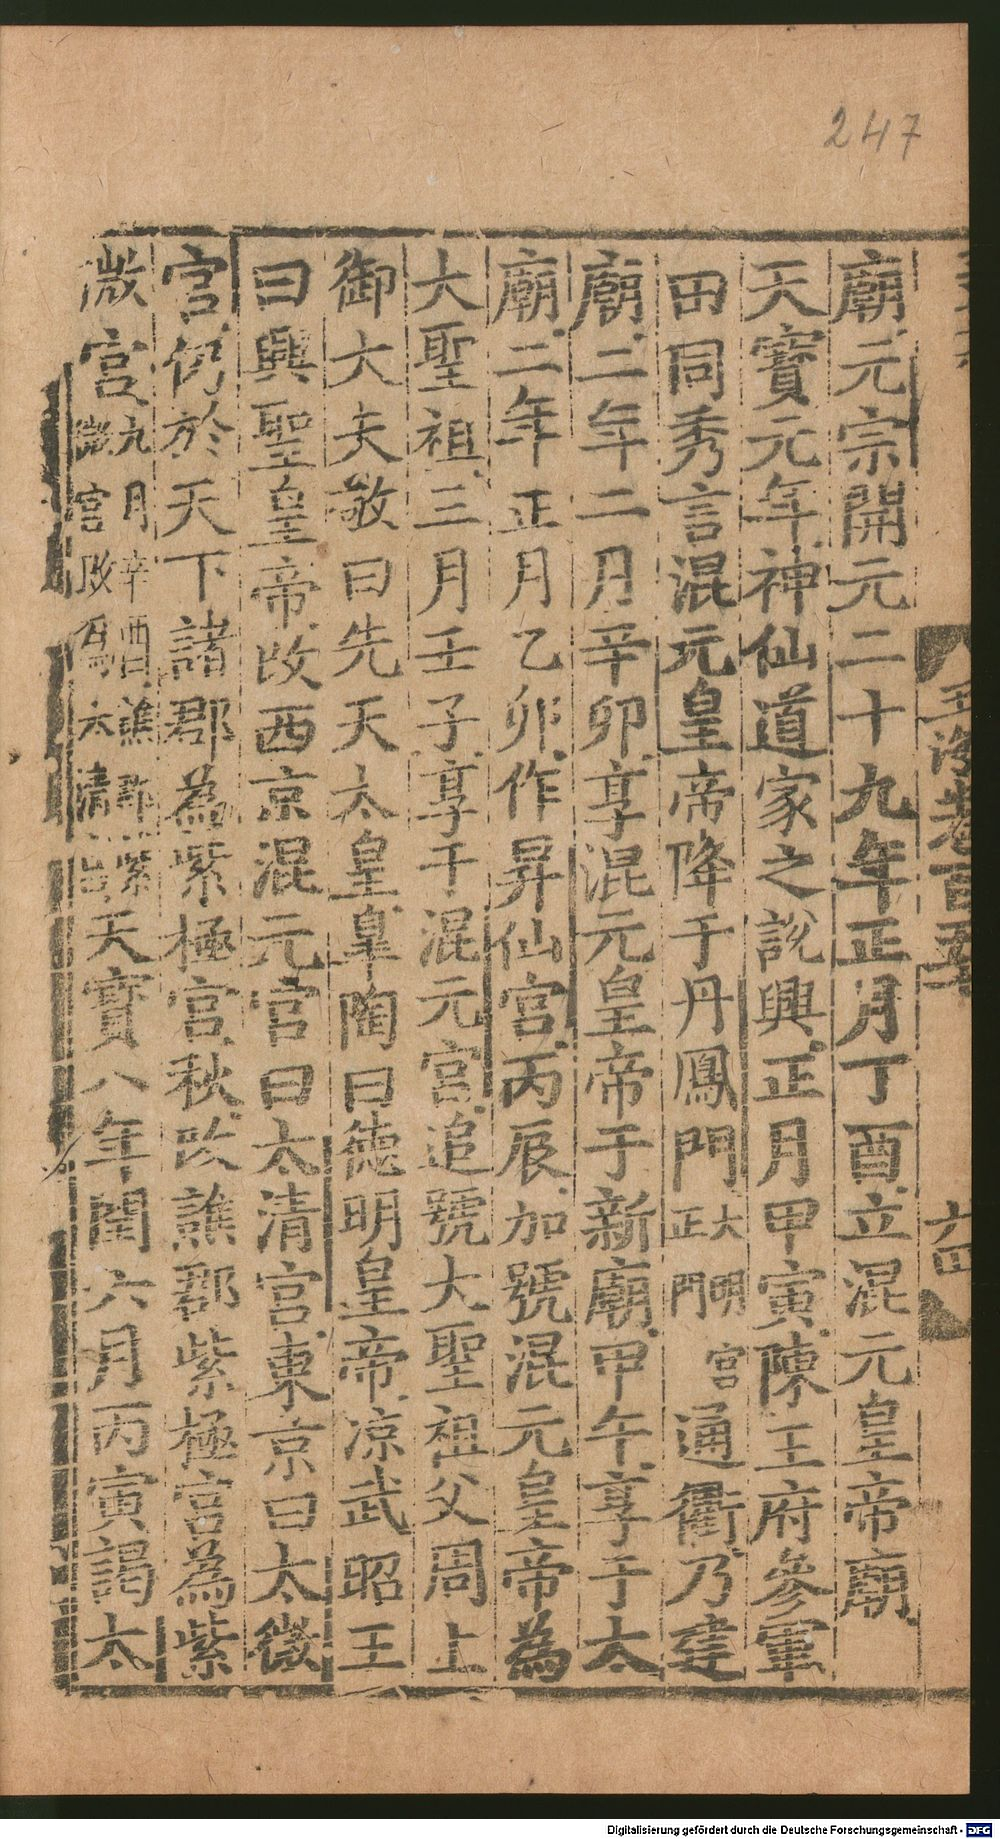 247
玉海卷百五
六四
廟元宗開元二十九年正月丁酉立混元皇帝廟
天寶元年神仙道家之說興正月甲寅陳王府參軍
田同秀言混元皇帝降于丹鳳門大明宮正門通衢乃建
廟二年二月辛卯享混元皇帝于新廟甲午享于太
廟二年正月乙卯作昇仙宮丙辰加號混元皇帝為
大聖祖三月壬子享于混元宮追號大聖祖父周上
御大夫敬曰先天太皇皐陶曰德明皇帝凉武昭王
曰興聖皇帝改西京混元宮曰太清宮東京曰太微
宮仍於天下諸郡為紫極宮秋改譙郡紫極宮為紫
微宮九月辛酉譙郡紫微宮改為太清宮天寶八年閏六月丙寅謁太
Digitalisierung gefördert durch die Deutsche Forschungsgemeinschaft - DFG